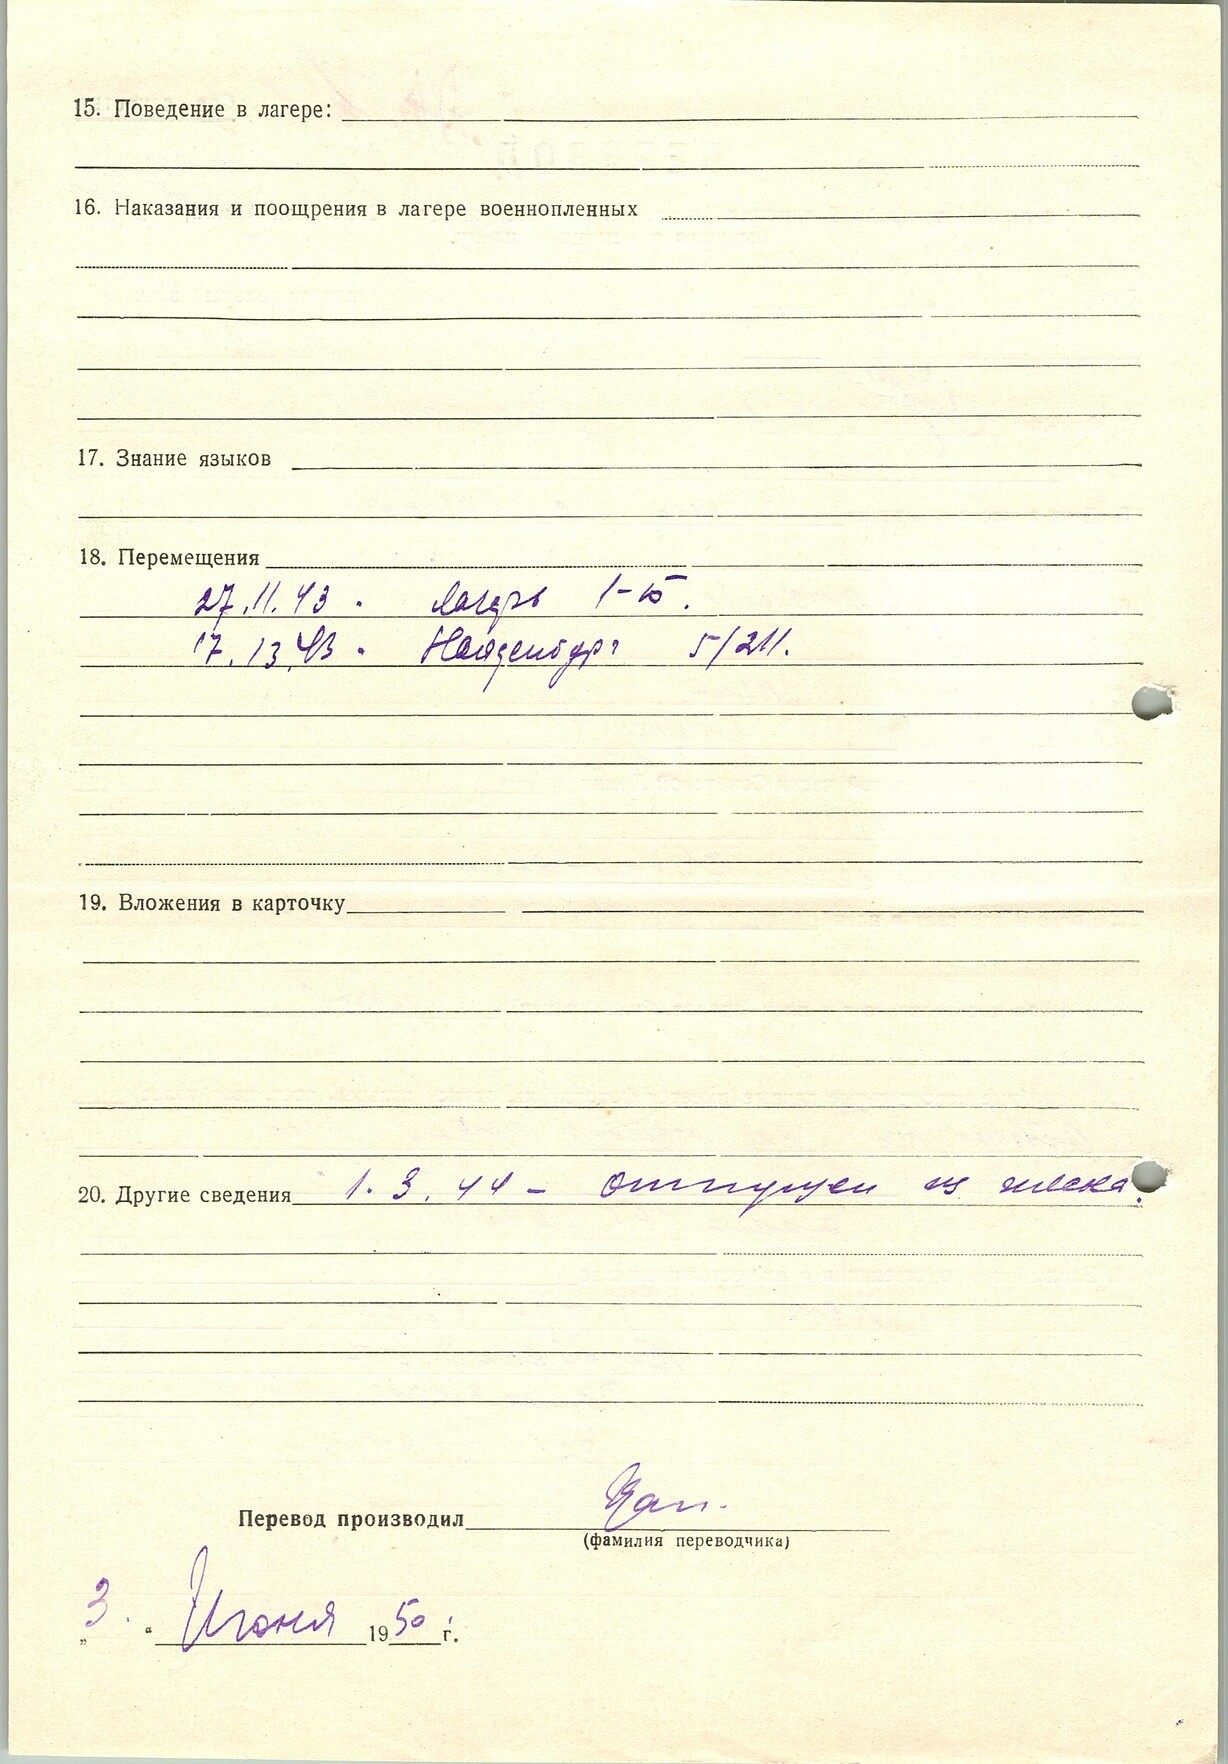 15. Поведение в лагере:
16. Наказания и поощрения в лагере военнопленных
17. Знание языков
18. Перемещения
27.11.43 . Лагерь 1-Б.
17.13.43 . 5/211.
19. Вложения в карточку
20. Другие сведения 1.3.44 - отпущен из плена.
Перевод производил
(фамилия переводчика)
„3. “ Июня 1950 г.